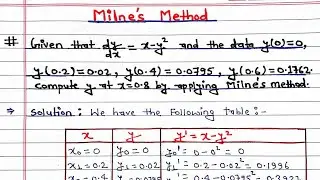 Milne's Method
# Given that dy/dx = x-y² and the data y(0)=0,
y(0.2)=0.02, y(0.4)=0.0795, y(0.6)=0.1762.
compute y at x=0.8 by applying Milne's method.
⇒ Solution: We have the following table:-
x y y' = x-y²
x₀=0 y₀=0 y₀' = 0-0² = 0
x₁=0.2 y₁=0.02 y₁' = 0.2-0.02² = 0.1996